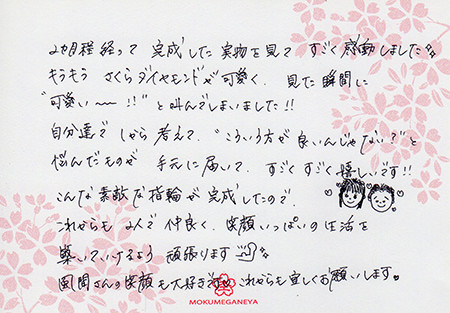 2カ月程経って 完成した実物を見て すごく感動しました
キラキラ さくらダイヤモンドが可愛く、見た瞬間に
"可愛い〜!!"と叫んでしまいました!!
自分達で しから 考えて、"こういう方が良いんじゃない?"と
悩んだものが 手元に届いて、すごくすごく嬉しいです!!
こんな素敵な指輪が完成したので、
これからも 2人で 仲良く、笑顔いっぱいの生活を
築いていけるよう 頑張ります
風間さんの笑顔も大好きです これからも宜しくお願いします
MOKUMEGANEYA